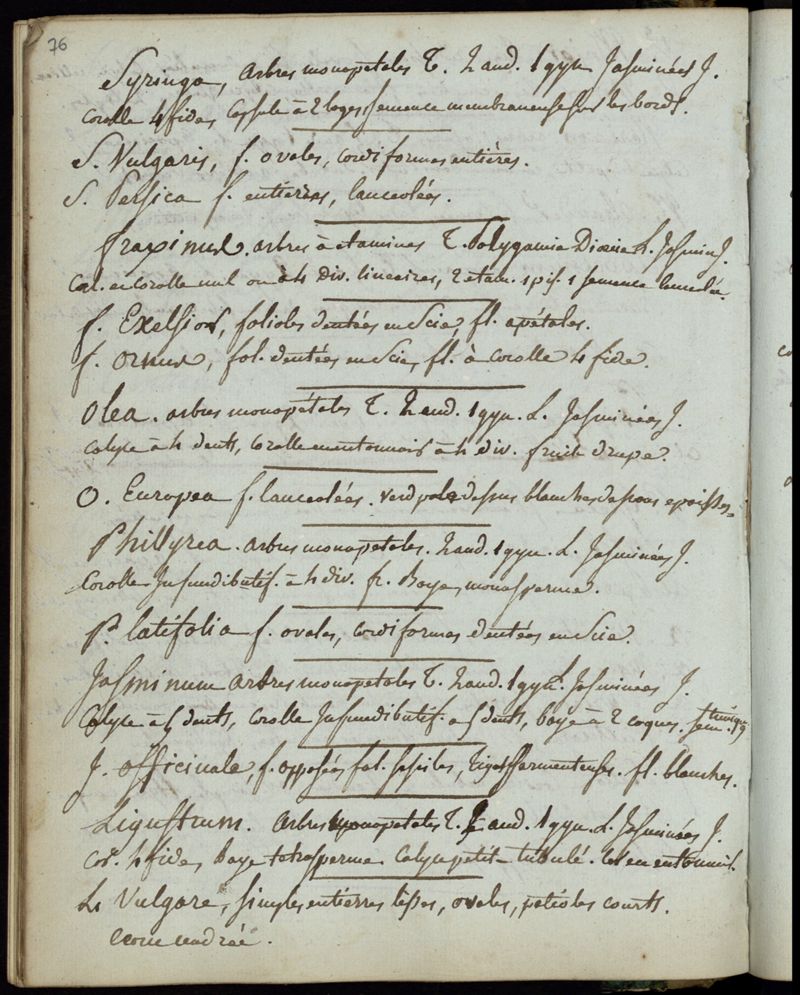 76
Syringa, arbres monopetales T. 2 and. 1 gyn. Jasminées J.
corolle 4 fides Capsule à 2 loges, semence membraneuse sur les bords.
S. Vulgaris, f. ovales, cordiformes entières.
S. Persica f. entierres, lanceolées.
fraxinus. arbres à étamines T. Polygamie Dioecie L. Jasmin J.
Cal. et Corolle nul ou à 4 div. lineaires, 2 étam. 1 pis. 1 semence lanceolée.
f. Exelsior, folioles dentées en Scie, fl. apétales.
f. ornus, fol. dentées en Scie, fl. à corolle 4 fide.
Olea. arbres monopétales T. 2 and. 1 gyn. L. Jasminées J.
Calyce à 4 dents, Corolle en entonnoir à 4 div. fruit drupe.
O. Europea f. lanceolées. verd pale dessus blanches dessous epaisses
Phillyrea. arbres monopetales. 2 and. 1 gyn. L. Jasminées J.
Corolle Infundibulif. à 4 div. fr. Baye, monosperme.
P. latifolia f. ovales, cordiformes dentées en Scie.
Jasminum arbres monopetales T. 2 and. 1 gyn. L. Jasminées J.
Calyce à 5 dents, corolle Infundibulif. a 5 dents, baye à 2 coques. sem.
J. officinale, f. opposées fol. sessiles, Tiges sarmenteuses. fl. blanches.
Ligustrum. arbres monopetales T. 2 and. 1 gyn. L. Jasminées J.
Cor. 4 fides, baye tétrasperme Calyce petit tubulé. en entonnoir.
L. Vulgare, simples entierres lisses, ovales, petioles courts.
ecorce cendrée.